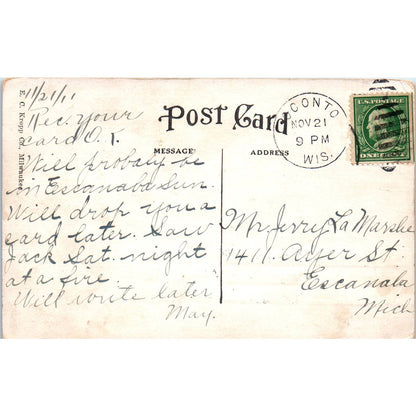 11/21/11
Rec. your
card O.K.
Will probaly be
in Escanaba Sun.
Will drop you a
card later. Saw
Jack Sat. night
at a fire.
Will write later
May.
E. C. Kropp Co., Milwaukee
Post Card
MESSAGE
ADDRESS
OCONTO
NOV 21
9 PM
WIS.
U.S. POSTAGE
ONE CENT
Mr. Jerry La Marche
1411 Ayer St.
Escanaba
Mich